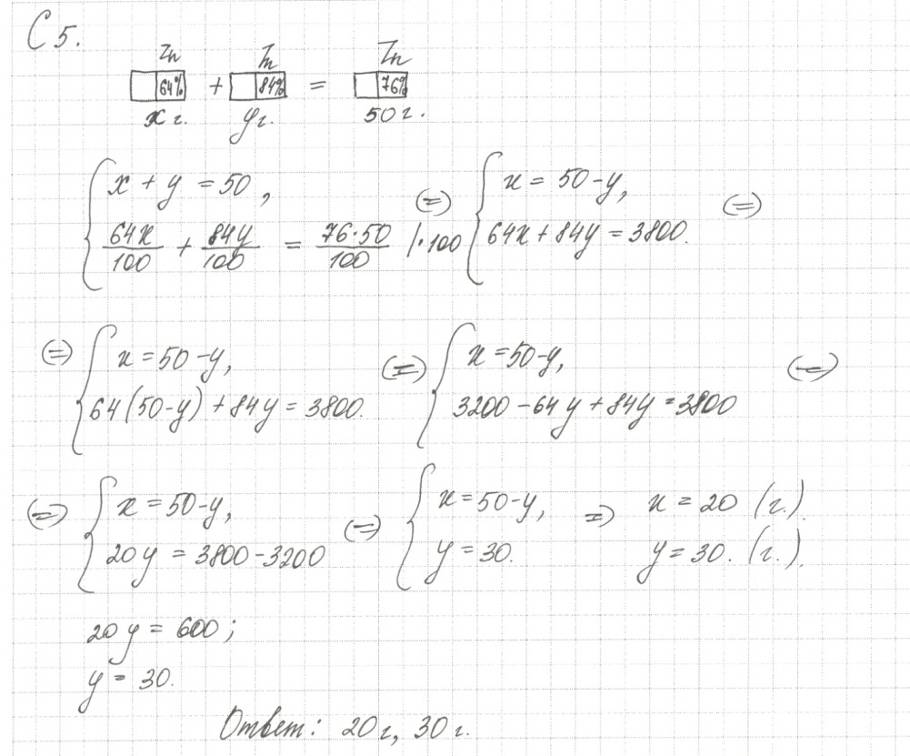 C 5.
Zn Zn Zn
64% + 84% = 76%
x г. y г. 50 г.
{ x + y = 50, 64x/100 + 84y/100 = 76·50/100 |·100 (=) { x = 50-y, 64x + 84y = 3800. (=)
(=) { x = 50-y, 64(50-y) + 84y = 3800. (=) { x = 50-y, 3200 - 64y + 84y = 3800 (=)
(=) { x = 50-y, 20y = 3800 - 3200 (=) { x = 50-y, y = 30. => x = 20 (г.). y = 30. (г.).
20y = 600;
y = 30.
Ответ: 20 г, 30 г.